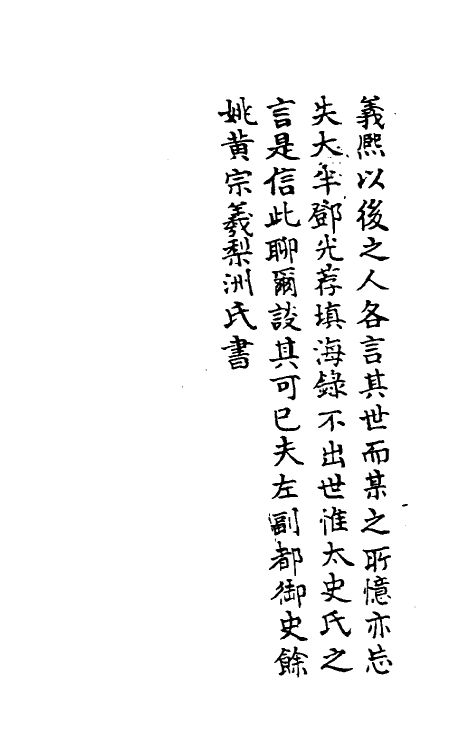 義熈以後之人各言其世而某之所憶亦忘
失大半鄧光荐填海錄不出世惟太史氏之
言是信此聊爾談其可已夫左副都御史餘
姚黄宗羲梨洲氏書